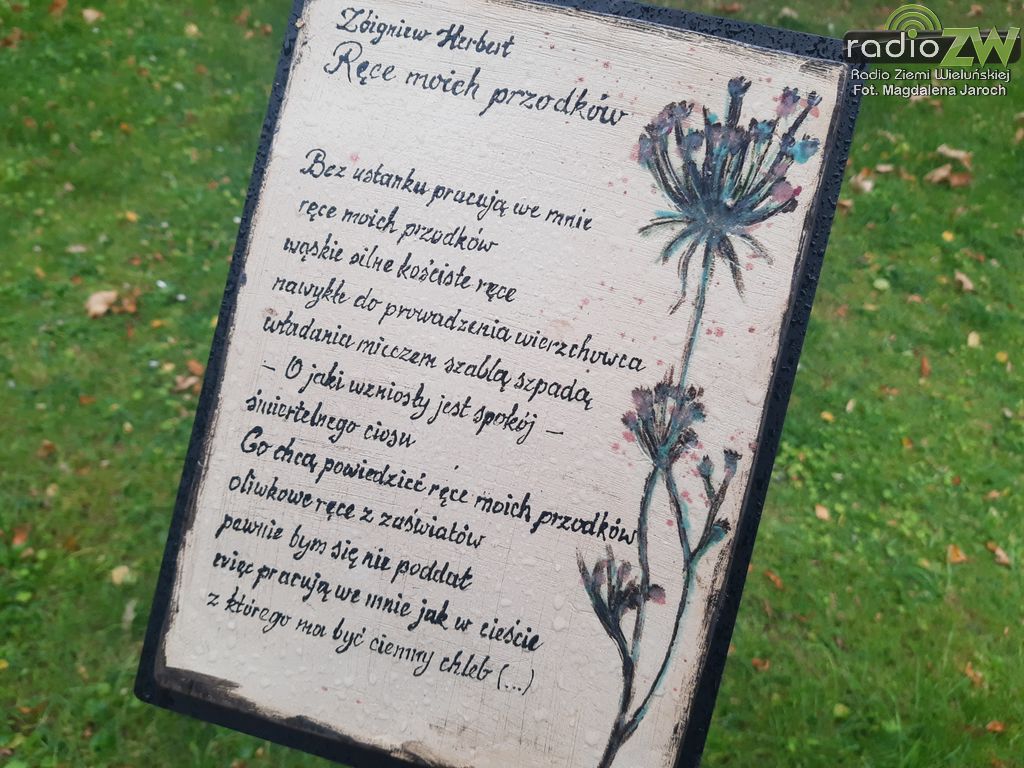 Zbigniew Herbert
Ręce moich przodków
Bez ustanku pracują we mnie
ręce moich przodków
wąskie silne kościste ręce
nawykłe do prowadzenia wierzchowca
władania mieczem szablą szpadą
– O jaki wzniosły jest spokój –
śmiertelnego ciosu
Co chcą powiedzieć ręce moich przodków
oliwkowe ręce z zaświatów
pewnie bym się nie poddał
więc pracują we mnie jak w cieście
z którego ma być ciemny chleb (...)
radioZW
Radio Ziemi Wieluńskiej
Fot. Magdalena Jaroch